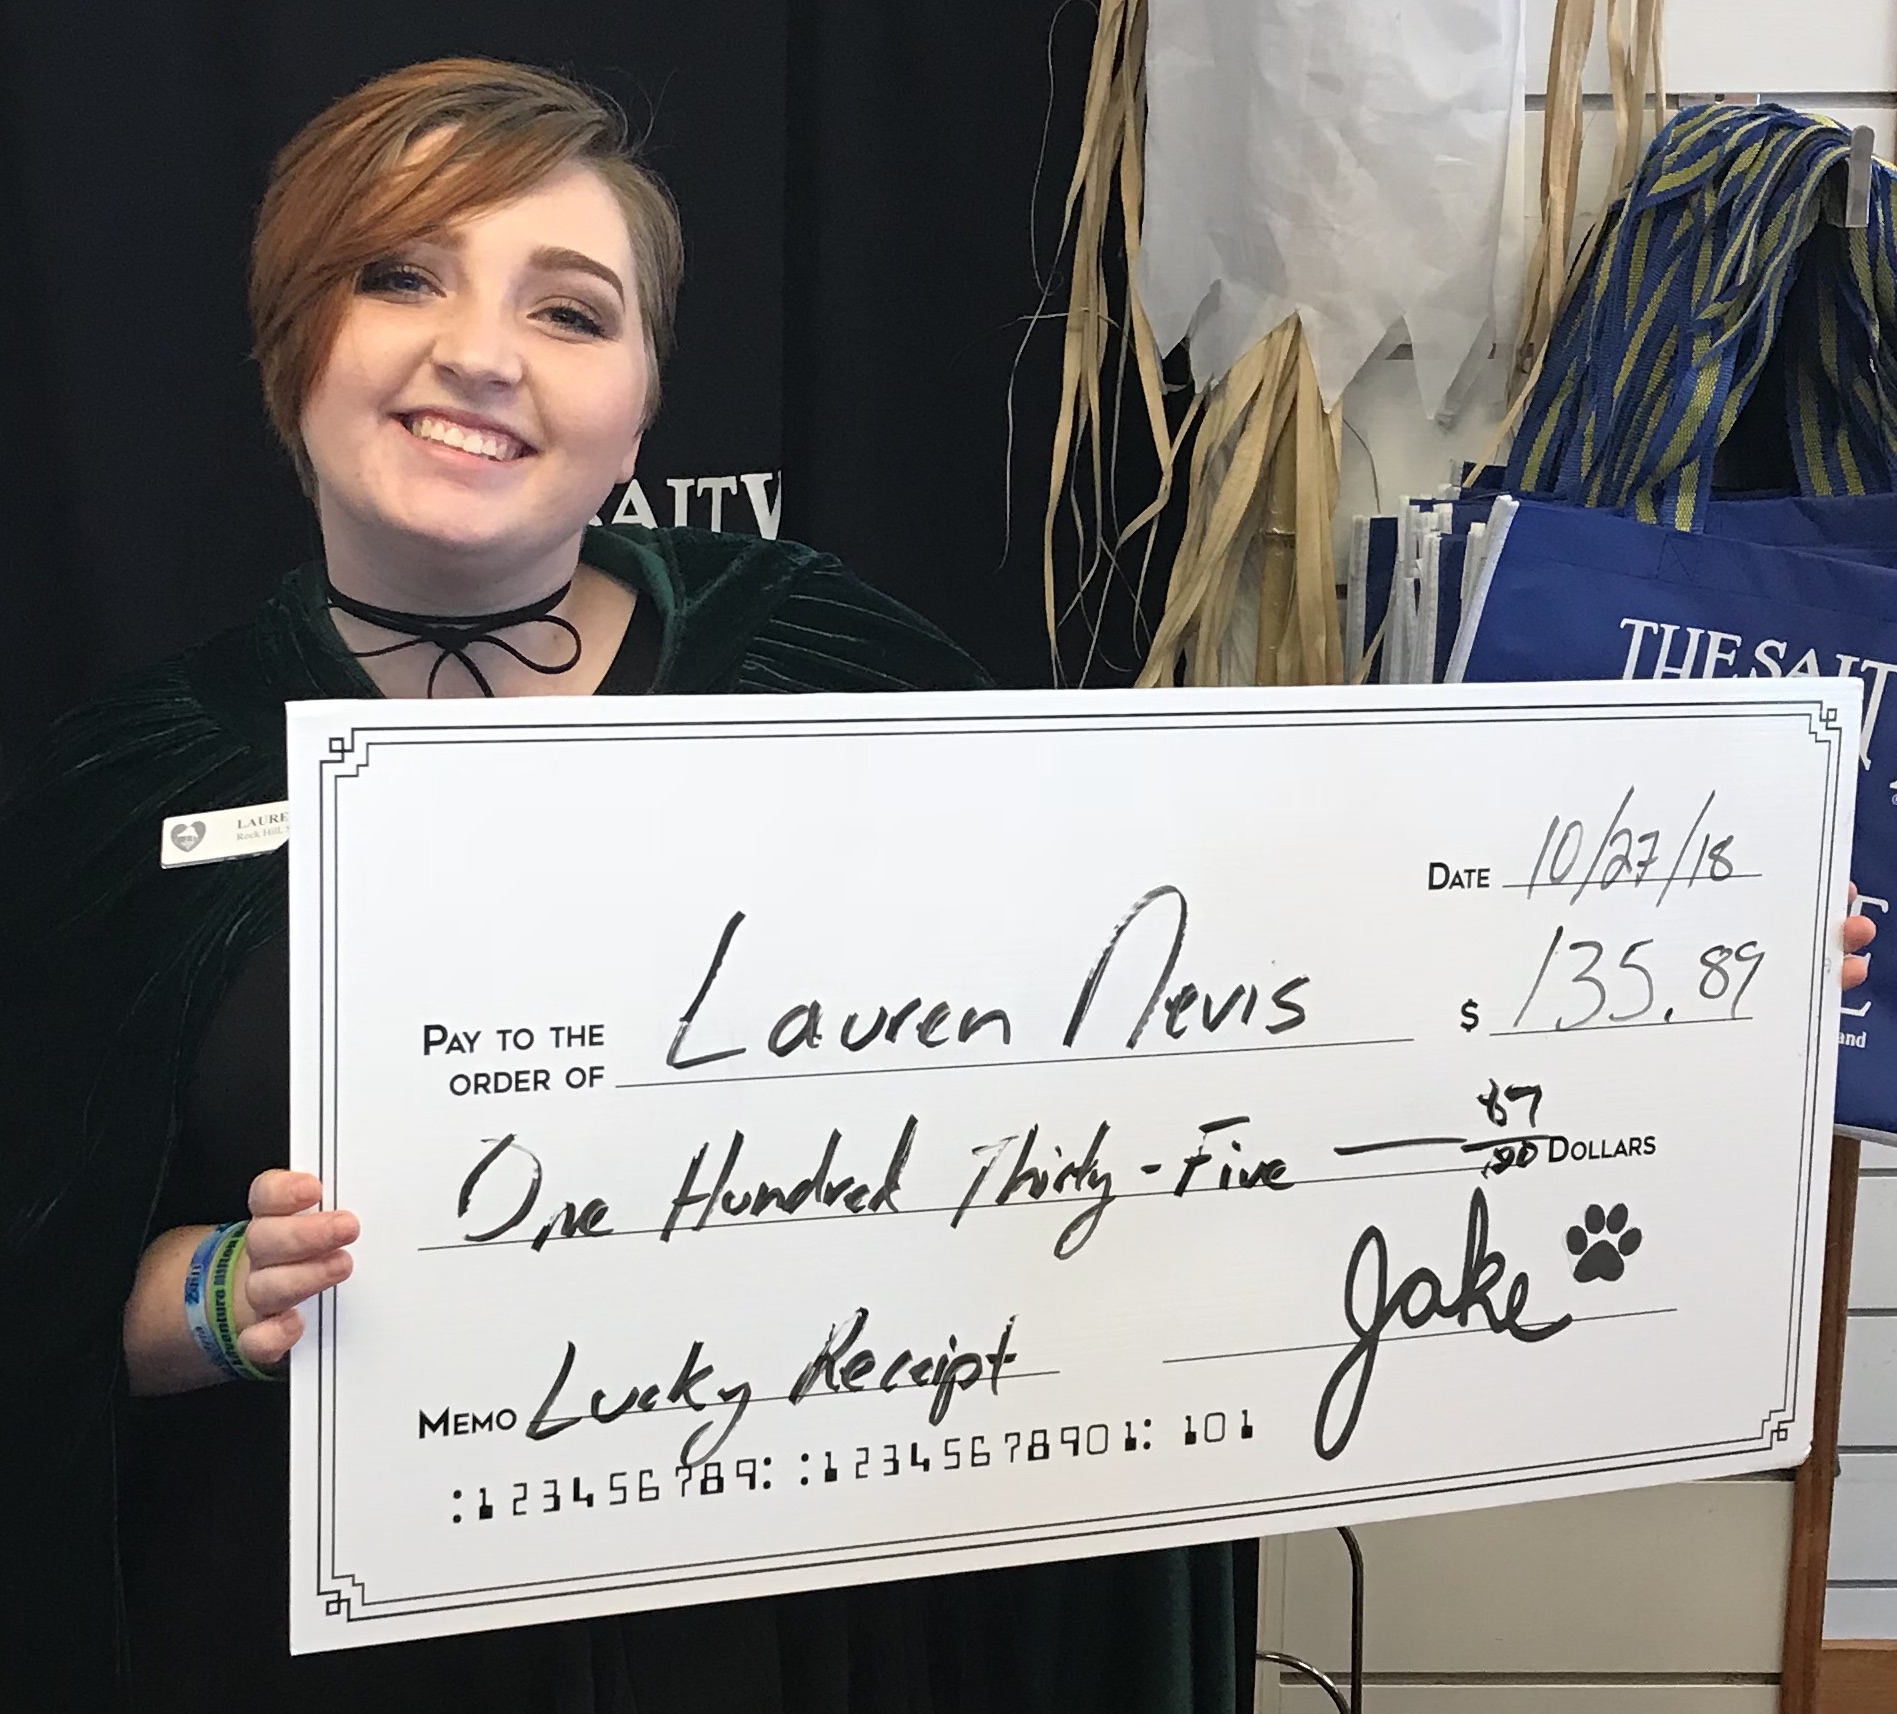 SALTW
THE SALT
LAURE
Rock Hill,
DATE 10/27/18
PAY TO THE
ORDER OF Lauren Nevis $ 135.89
One Hundred Thirty-Five 89
100 DOLLARS
Jake
MEMO Lucky Receipt
:123456789: :12345678901: 101
and